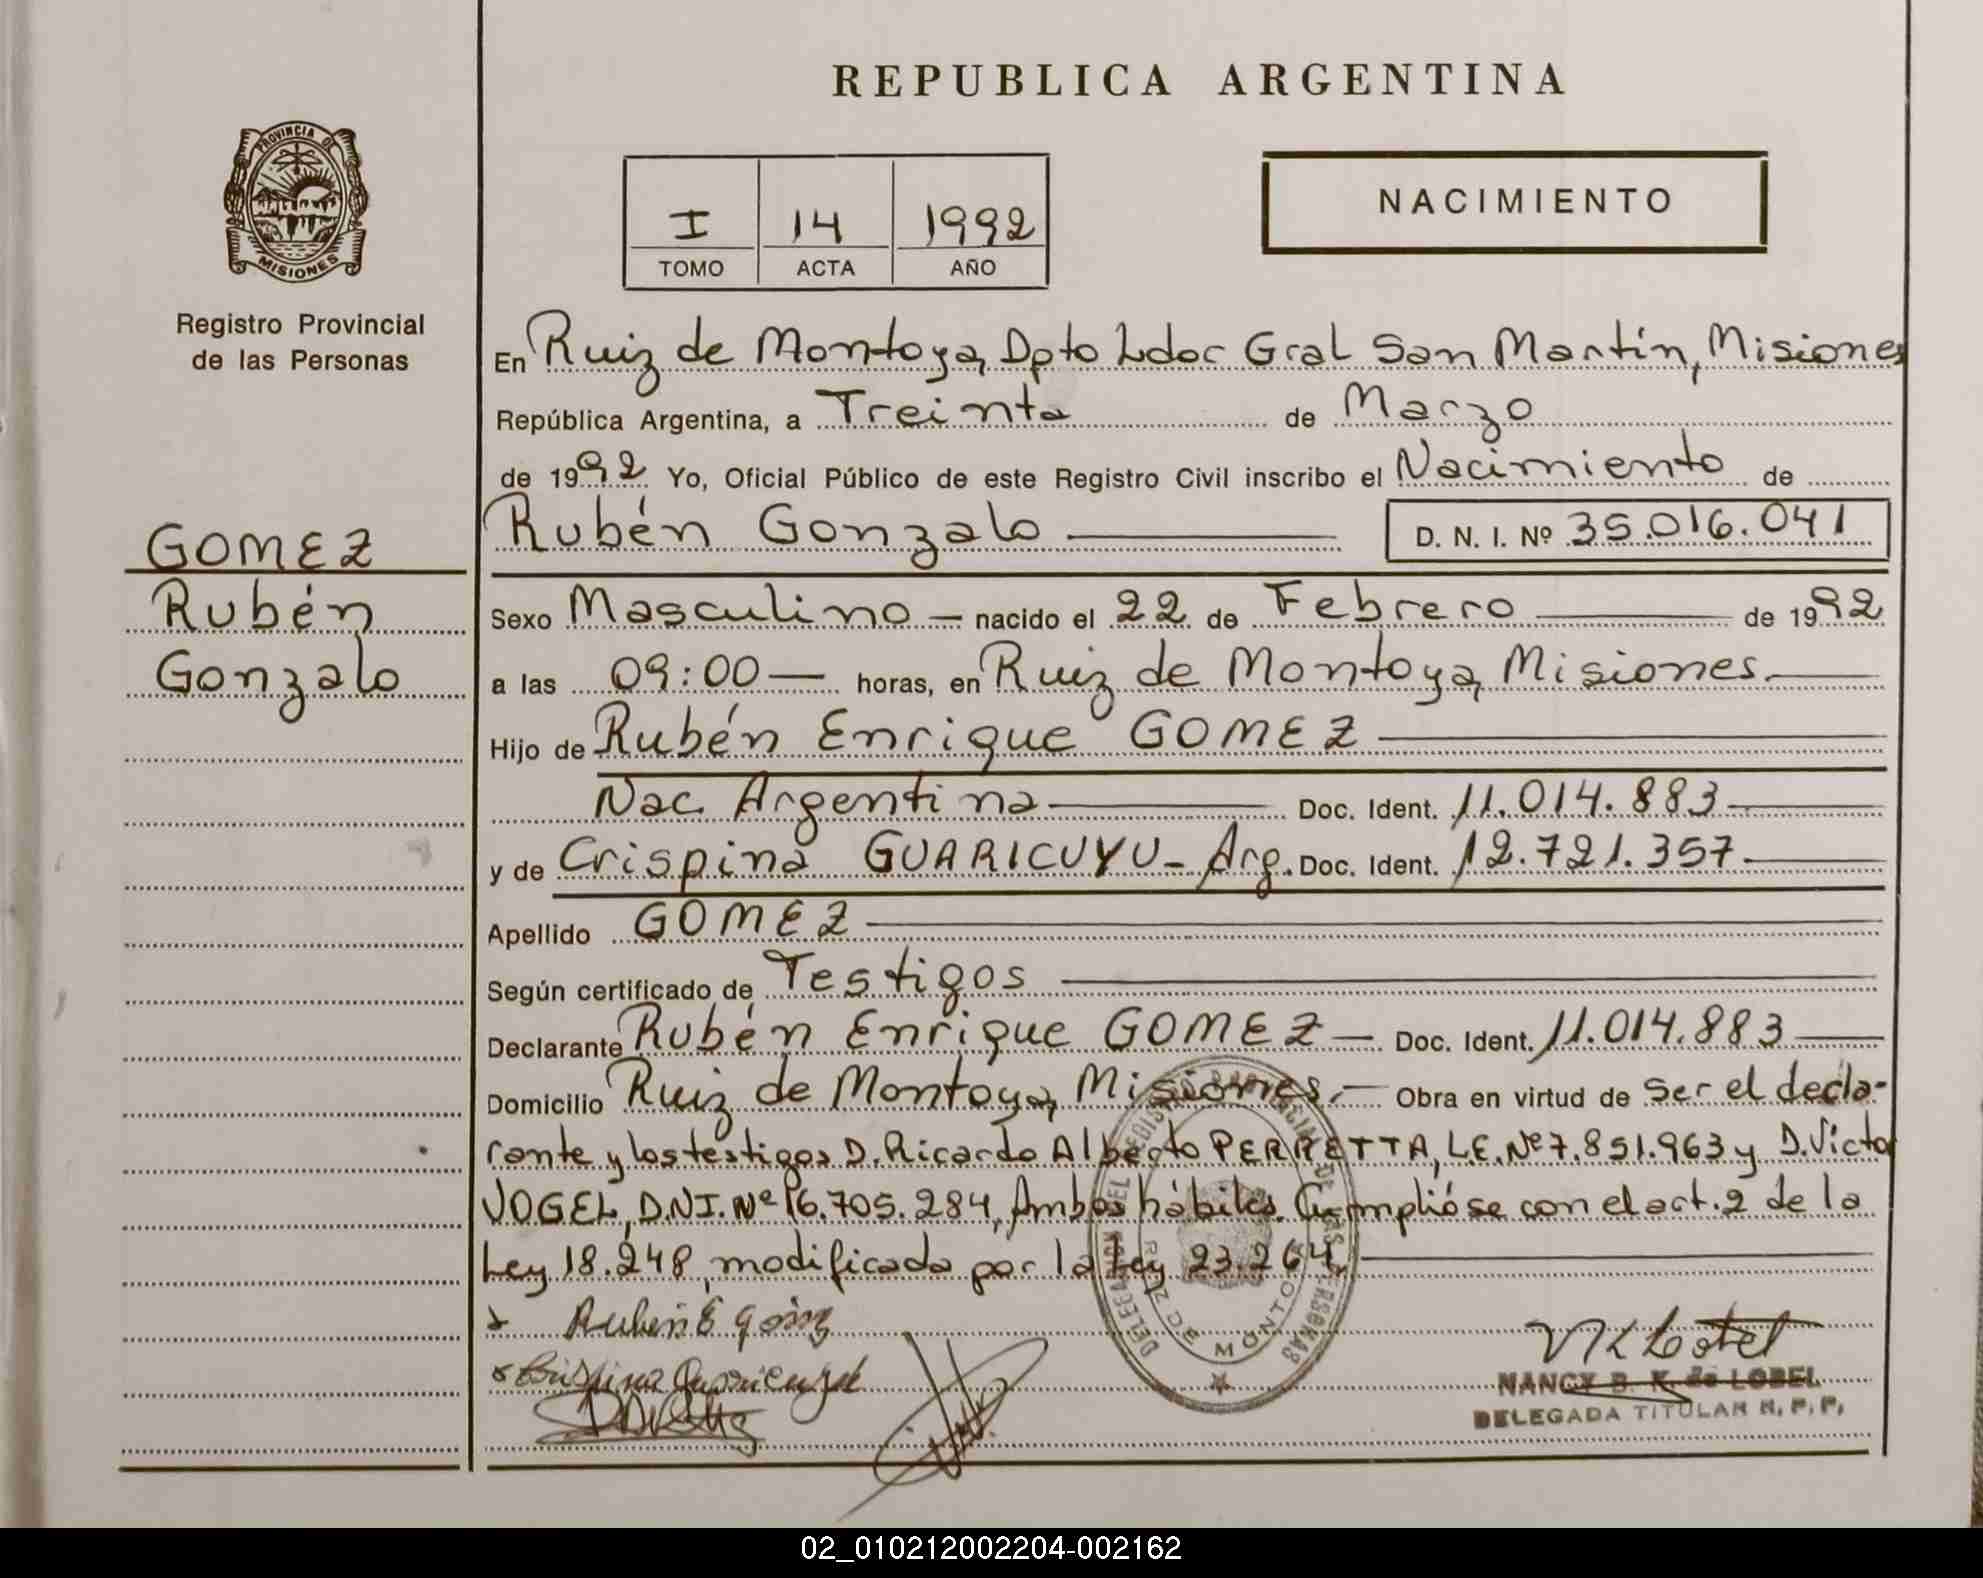 REPUBLICA ARGENTINA
PROVINCIA DE
MISIONES
Registro Provincial
de las Personas
I 14 1992
TOMO ACTA AÑO
NACIMIENTO
En Ruiz de Montoya, Dpto Ldor Gral San Martín, Misiones
República Argentina, a Treinta de Marzo
de 1992 Yo, Oficial Público de este Registro Civil inscribo el Nacimiento de
Rubén Gonzalo D. N. I. Nº 35.016.041
GOMEZ
Rubén
Gonzalo
Sexo Masculino — nacido el 22 de Febrero de 1992
a las 09:00 — horas, en Ruiz de Montoya, Misiones.
Hijo de Rubén Enrique GOMEZ
Nac. Argentina Doc. Ident. 11.014.883
y de Crispina GUARICUYU - Arg. Doc. Ident. 12.721.357
Apellido GOMEZ
Según certificado de Testigos
Declarante Rubén Enrique GOMEZ — Doc. Ident. 11.014.883
Domicilio Ruiz de Montoya, Misiones.— Obra en virtud de ser el decla-
rante y los testigos D. Ricardo Alberto PERRETTA, L.E. Nº 7.851.963 y D. Victor
VOGEL, D.N.I. Nº 16.705.284, Ambos hábiles. Cumplióse con el art. 2 de la
Ley 18.248, modificada por la Ley 23.264,
Ruben E Gomez
Crispina
NANCY B. K. de LOBEL
DELEGADA TITULAR R. P. P.
RUIZ DE MONTOYA
02_010212002204-002162